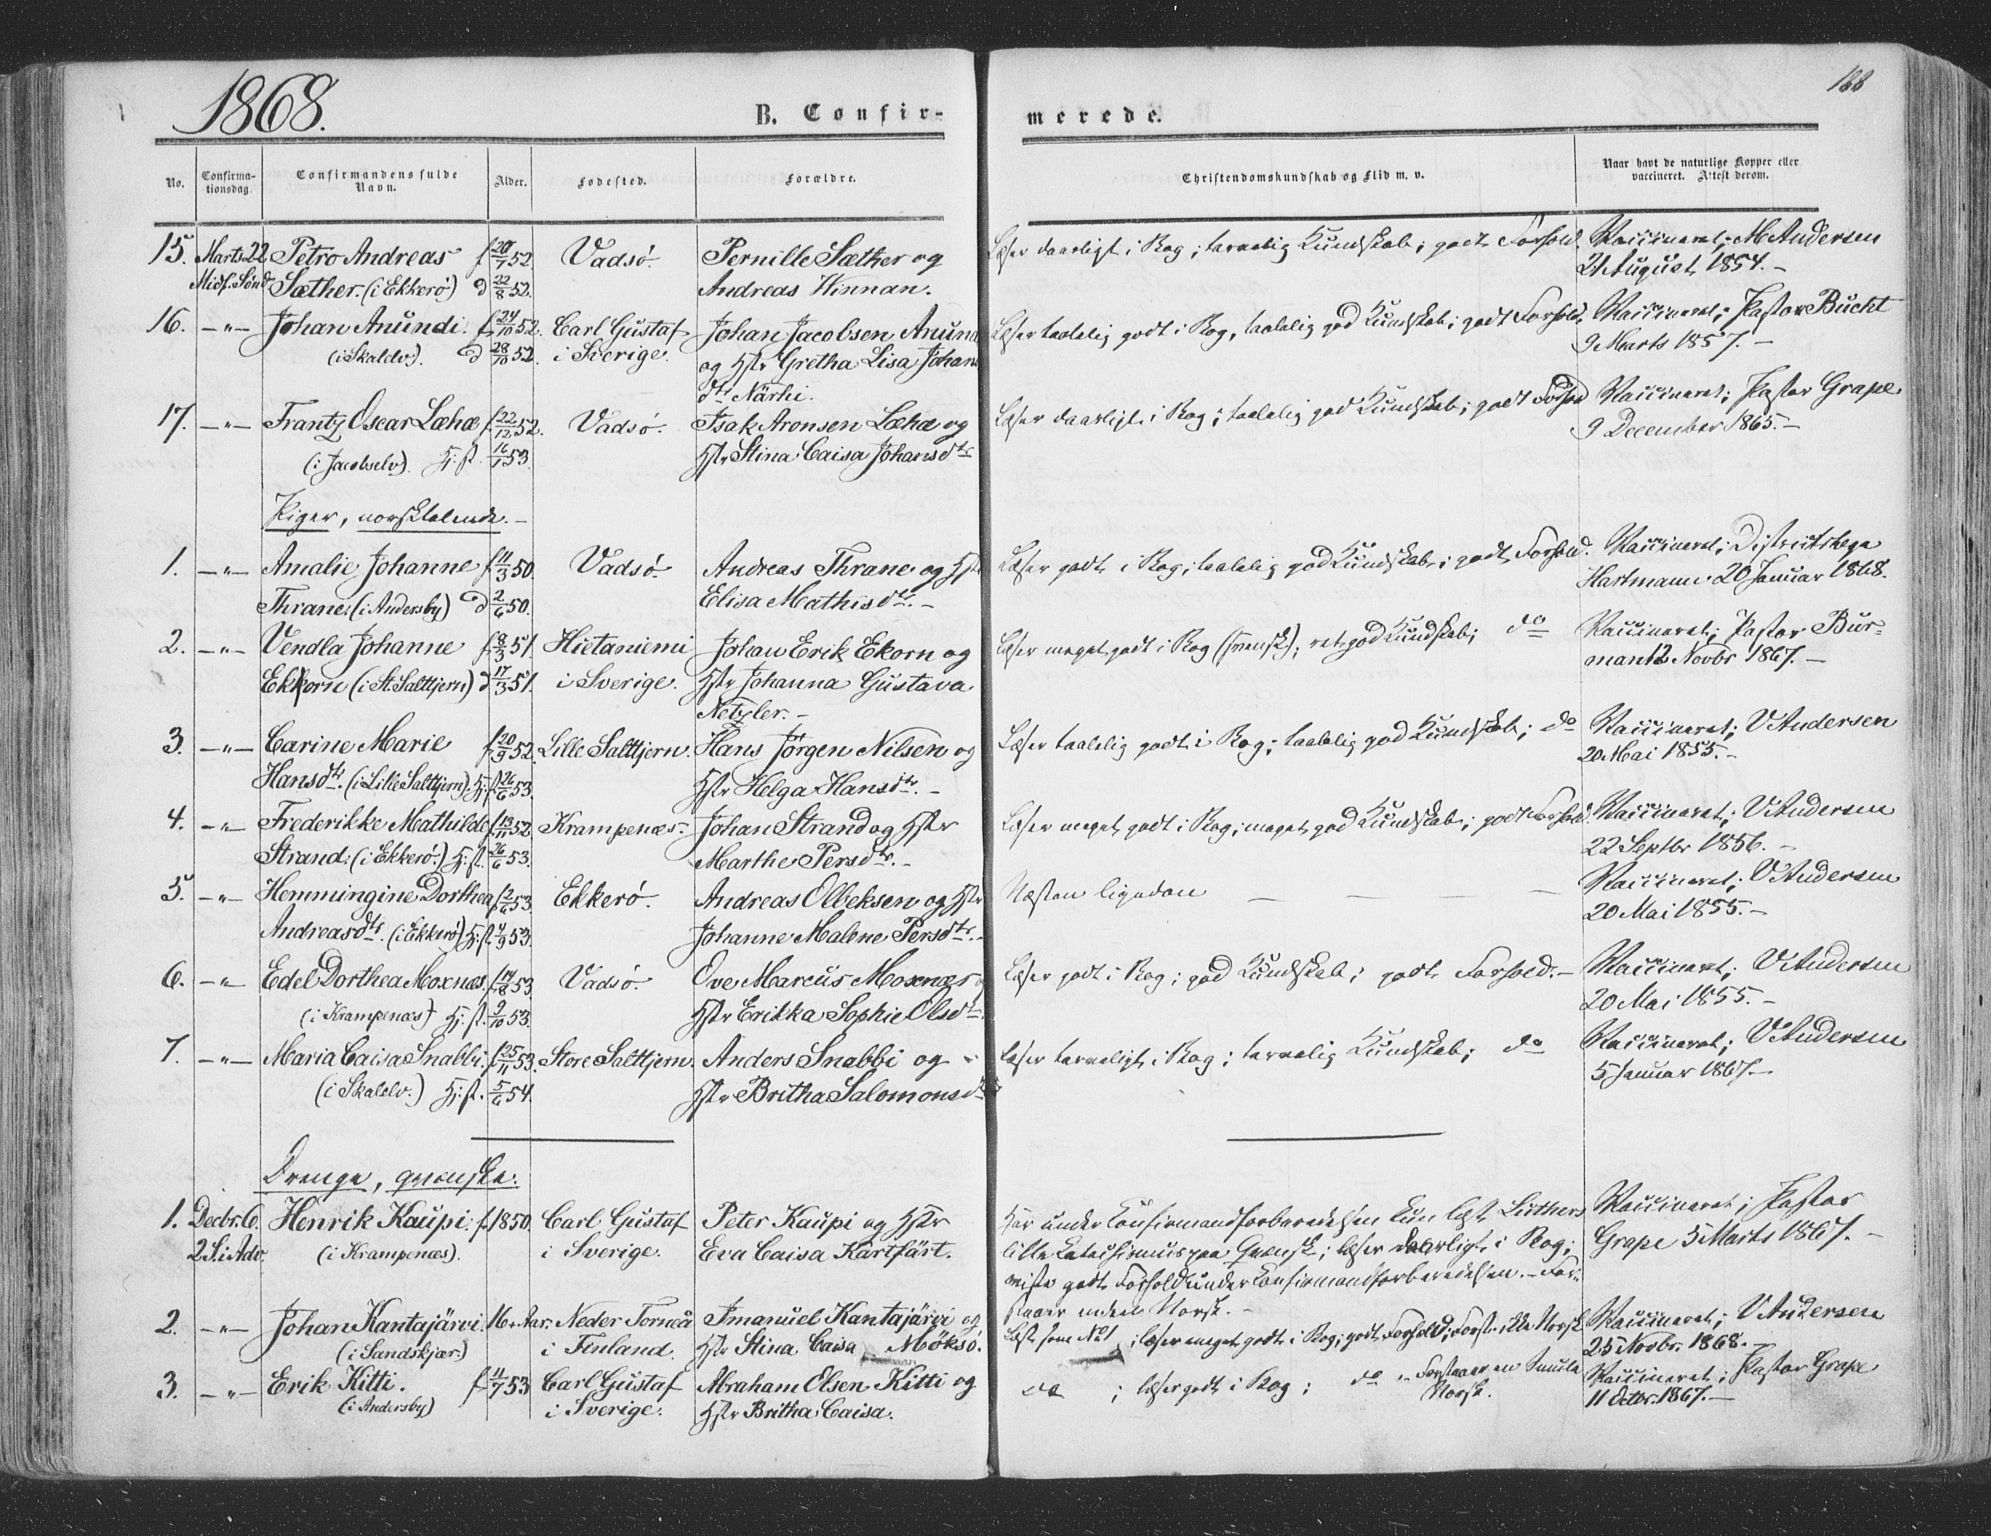 1868.
188
B. Confir-
merede.
No.
Confirma-
tionsdag.
Confirmandens fulde
Navn.
Alder.
Fødested.
Forældre.
Christendomskundskab og Flid m. v.
Naar havt de naturlige Kopper eller
vaccineret. Attest derom.
15. Marts 22 Petro Andreas f 52. Vadsø. Pernille Sæther og Læser daarligt i Bog; tarvelig Kundskab; godt Forhold. Vaccineret; M Andersen
Midf. Sønd. Sæther. (i Ekkerø) d 22/8 52. Andreas Hinnan. 21 August 1854.-
16. -"- Johan Anundi. f 24/10 52. Carl Gustaf Johan Jacobsen Anund Læser taalelig godt i Bog, taalelig god Kundskab; godt Forhold. Vaccineret; Pastor Bucht
(i Skaldelv). d 28/10 52. i Sverige. og Hstr Gretha Lisa Johans 9 Marts 1857.-
dtr Närhi.
17. -"- Frantz Oscar Læhæ f 22/12 52. Vadsø. Isak Aronsen Læhæ og Læser daarligt i Bog; taalelig god Kundskab; godt Forhold Vaccineret; Pastor Grape
(i Jacobselv). Hj. st. 16/1 53. Hstr Stina Caisa Johansdtr 9 December 1865.-
Piger, norsktalende.-
1. -"- Amalie Johanne f 11/3 50. Vadsø. Andreas Thrane og Hstr Læser godt i Bog; taalelig god Kundskab; godt Forhold. Vaccineret; Districtslæge
Thrane. (i Andersby) d 2/6 50. Elisa Mathisdtr.- Hartmann 20 Januar 1868.
2. -"- Vendla Johanne f 8/3 51. Hietaniemi Johan Erik Ekorn og Læser meget godt i Bog (svensk); ret god Kundskab; do Vaccineret; Pastor Bur-
Ekkorn (i St. Salttjern) d 17/3 51. i Sverige. Hstr Johanna Gustava man 12 Novbr 1867.-
Netzler.-
3. -"- Carine Marie f 20/9 52. Lille Salttjern. Hans Jørgen Nilsen og Læser taalelig godt i Bog; taalelig god Kundskab; do Vaccineret; V Andersen
Hansdtr. (i Lille Salttjern). Hj. st. 26/6 53. Hstr Helga Hansdtr.- 20 Mai 1855.-
4. -"- Frederikke Mathilde f 13/11 52. Krampenæs.- Johan Strand og Hstr Læser meget godt i Bog; meget god Kundskab; godt Forhold. Vaccineret; V Andersen
Strand. (i Ekkerø.) Hj. st. 26/6 53. Marthe Persdtr.- 22 Septbr 1856.-
5. -"- Hemmingine Dorthea f 2/6 53. Ekkerø. Andreas Olbeksen og Hstr Næsten ligedan - - - - Vaccineret; V Andersen
Andreasdtr. (i Ekkerø) Hj. st. 4/9 53. Johanne Malene Persdtr.- 20 Mai 1855.-
6. -"- Edel Dorthea Moxnæs. f 14/8 53. Vadsø. Ove Marcus Moxnæs og Læser godt i Bog; god Kundskab; godt Forhold.- Vaccineret; V Andersen
(i Krampenæs) Hj. st. 9/10 53. Hstr Erikka Sophie Olsdtr. 20 Mai 1855.-
7. -"- Maria Caisa Snabbi. f 25/11 53. Store Salttjern. Anders Snabbi og Læser tarveligt i Bog; tarvelig Kundskab; do Vaccineret; V Andersen
(i Skaldelv.) Hj. st. 5/6 54. Hstr Britha Salomonsdtr 5 Januar 1867.-
Drenge, qvænske.
1. Decbr. 6. Henrik Kaupi. f. 1850. Carl Gustaf Peter Kaupi og Hstr Har under Confirmandforberedelsen kun læst Luthers Vaccineret; Pastor
2 S. i Adv. (i Krampenæs). i Sverige. Eva Caisa Kartfärt. lille Katechismus paa Qvænsk; læser daarligt i Bog; Grape 5 Marts 1867.-
viste godt Forhold under Confirmandforberedelsen.- For-
staar inden Norsk.-
2. -"- Johan Kantajärvi. 16 Aar. Neder Torneå Imanuel Kantajärvi og Læst som No 1; læser meget godt i Bog; godt Forhold; Forst. ikke Norsk Vaccineret; V Andersen
(i Sandskjær.) i Finland. Hstr Stina Caisa Möksö. 25 Novbr. 1868.-
3. -"- Erik Kitti. f 11/7 53 Carl Gustaf Abraham Olsen Kitti og do ; læser godt i Bog; do " Forstaar en Smule Vaccineret; Pastor Grape
(i Andersby) i Sverige. Hstr Britha Caisa. Norsk. 11 Octbr. 1867.-